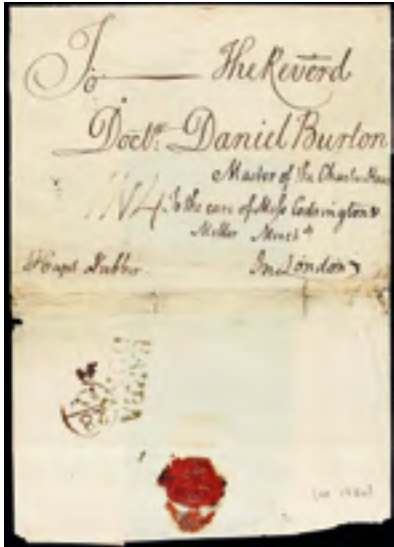 To The Reverd
Doctr. Daniel Burton
Master of the Charter
IN4 To the care of Mess Codrington &
Miller Merch.ts
Capt In London